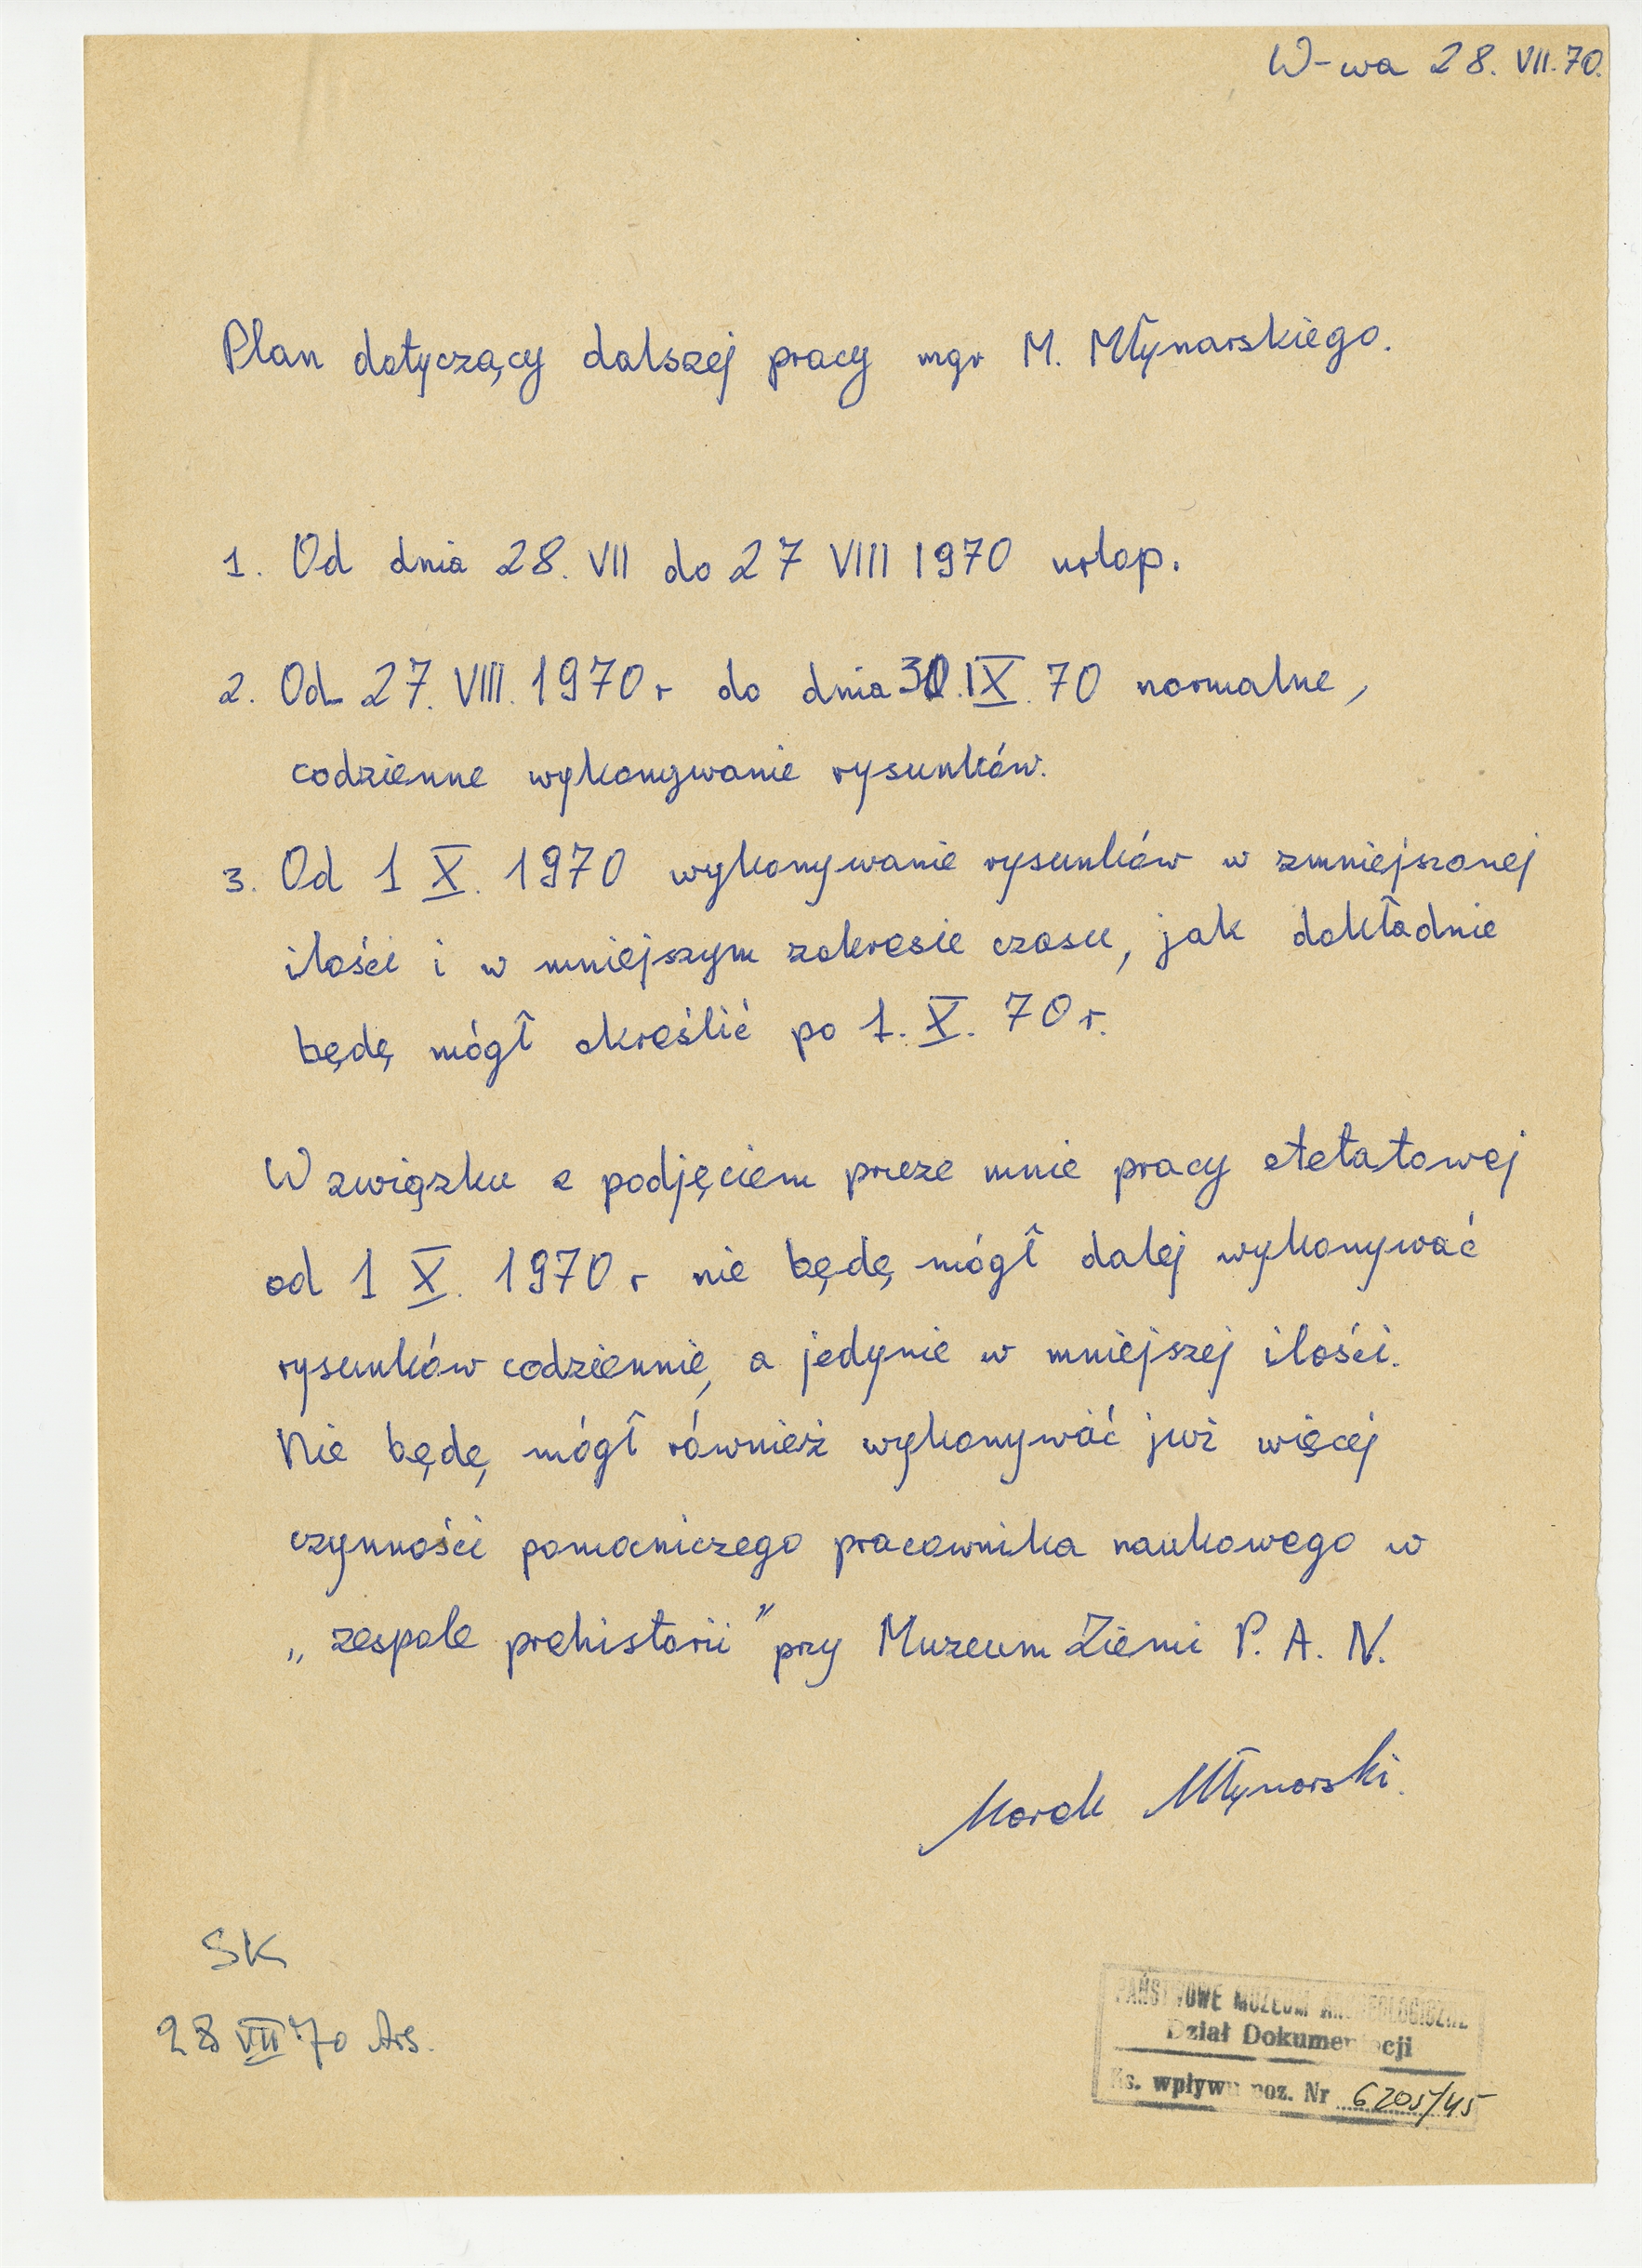 W-wa 28. VII. 70.
Plan dotyczący dalszej pracy mgr M. Młynarskiego.
1. Od dnia 28. VII do 27 VIII 1970 urlop.
2. Od 27. VIII. 1970 r do dnia 30. IX. 70 normalne,
codzienne wykonywanie rysunków.
3. Od 1 X. 1970 wykonywanie rysunków w zmniejszonej
ilości i w mniejszym zakresie czasu, jak dokładnie
będę mógł określić po 1. X. 70 r.
W związku z podjęciem przeze mnie pracy etetatowej
od 1 X. 1970 r nie będę mógł dalej wykonywać
rysunków codziennie, a jedynie w mniejszej ilości.
Nie będę mógł również wykonywać już więcej
czynności pomocniczego pracownika naukowego w
„zespole prehistorii" przy Muzeum Ziemi P. A. N.
Marek Młynarski.
SK
28 VII 70
PAŃSTWOWE MUZEUM ARCHEOLOGICZNE
Dział Dokumentacji
Ks. wpływu poz. Nr 6205/45